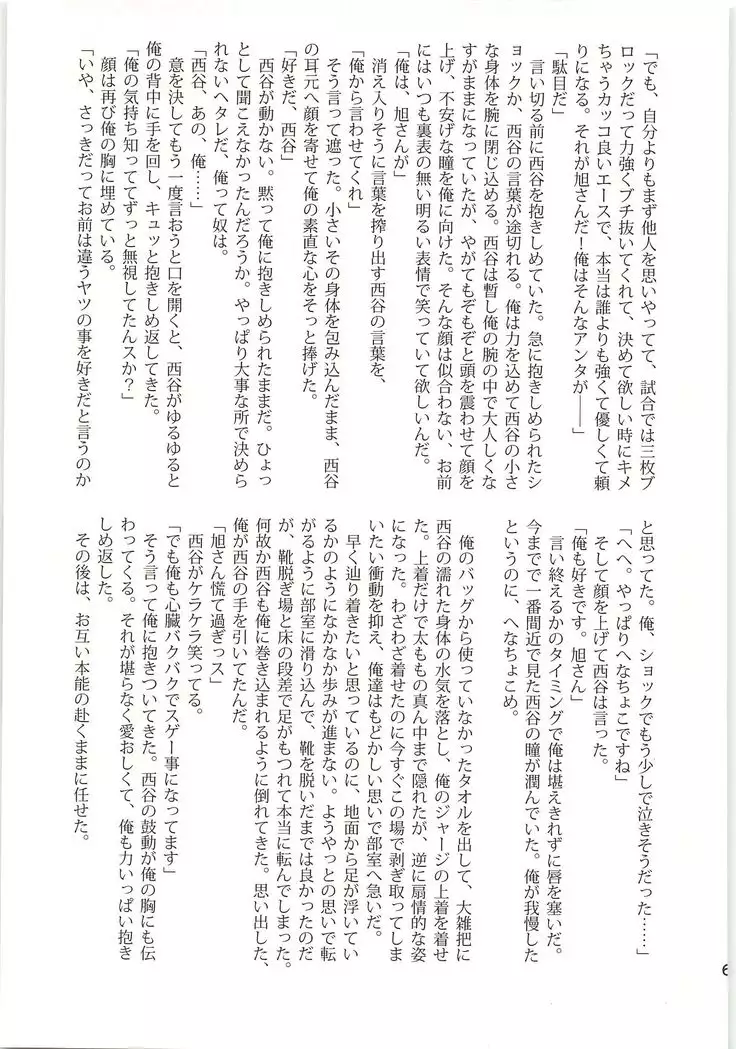 「でも、自分よりもまず他人を思いやってて、試合では三枚ブ
ロックだって力強くブチ抜いてくれて、決めて欲しい時にキメ
ちゃうカッコ良いエースで、本当は誰よりも強くて優しくて頼
りになる。それが旭さんだ！俺はそんなアンタが――」
「駄目だ」
言い切る前に西谷を抱きしめていた。急に抱きしめられたシ
ョックか、西谷の言葉が途切れる。俺は力を込めて西谷の小さ
な身体を腕に閉じ込める。西谷は暫し俺の腕の中で大人しくな
すがままになっていたが、やがてもぞもぞと頭を震わせて顔を
上げ、不安げな瞳を俺に向けた。そんな顔は似合わない、お前
にはいつも裏表の無い明るい表情で笑っていて欲しいんだ。
「俺は、旭さんが」
消え入りそうに言葉を搾り出す西谷の言葉を、
「俺から言わせてくれ」
そう言って遮った。小さいその身体を包み込んだまま、西谷
の耳元へ顔を寄せて俺の素直な心をそっと捧げた。
「好きだ、西谷」
西谷が動かない。黙って俺に抱きしめられたままだ。ひょっ
として聞こえなかったんだろうか。やっぱり大事な所で決めら
れないヘタレだ、俺って奴は。
「西谷、あの、俺……」
意を決してもう一度言おうと口を開くと、西谷がゆるゆると
俺の背中に手を回し、キュッと抱きしめ返してきた。
「俺の気持ち知っててずっと無視してたんスか？」
顔は再び俺の胸に埋めている。
「いや、さっきだってお前は違うヤツの事を好きだと言うのか
と思ってた。俺、ショックでもう少しで泣きそうだった……」
「へへ。やっぱりへなちょこですね」
そして顔を上げて西谷は言った。
「俺も好きです。旭さん」
言い終えるかのタイミングで俺は堪えきれずに唇を塞いだ。
今までで一番間近で見た西谷の瞳が潤んでいた。俺が我慢した
というのに、へなちょこめ。
俺のバッグから使っていなかったタオルを出して、大雑把に
西谷の濡れた身体の水気を落とし、俺のジャージの上着を着せ
た。上着だけで太ももの真ん中まで隠れたが、逆に扇情的な姿
になった。わざわざ着せたのに今すぐこの場で剥ぎ取ってしま
いたい衝動を抑え、俺達はもどかしい思いで部室へ急いだ。
早く辿り着きたいと思っているのに、地面から足が浮いてい
るかのようになかなか歩みが進まない。ようやっとの思いで転
がるように部室に滑り込んで、靴を脱いだまでは良かったのだ
が、靴脱ぎ場と床の段差で足がもつれて本当に転んでしまった。
何故か西谷も俺に巻き込まれるように倒れてきた。思い出した、
俺が西谷の手を引いてたんだ。
「旭さん慌て過ぎっス」
西谷がケラケラ笑ってる。
「でも俺も心臓バクバクでスゲー事になってます」
そう言って俺に抱きついてきた。西谷の鼓動が俺の胸にも伝
わってくる。それが堪らなく愛おしくて、俺も力いっぱい抱き
しめ返した。
その後は、お互い本能の赴くままに任せた。